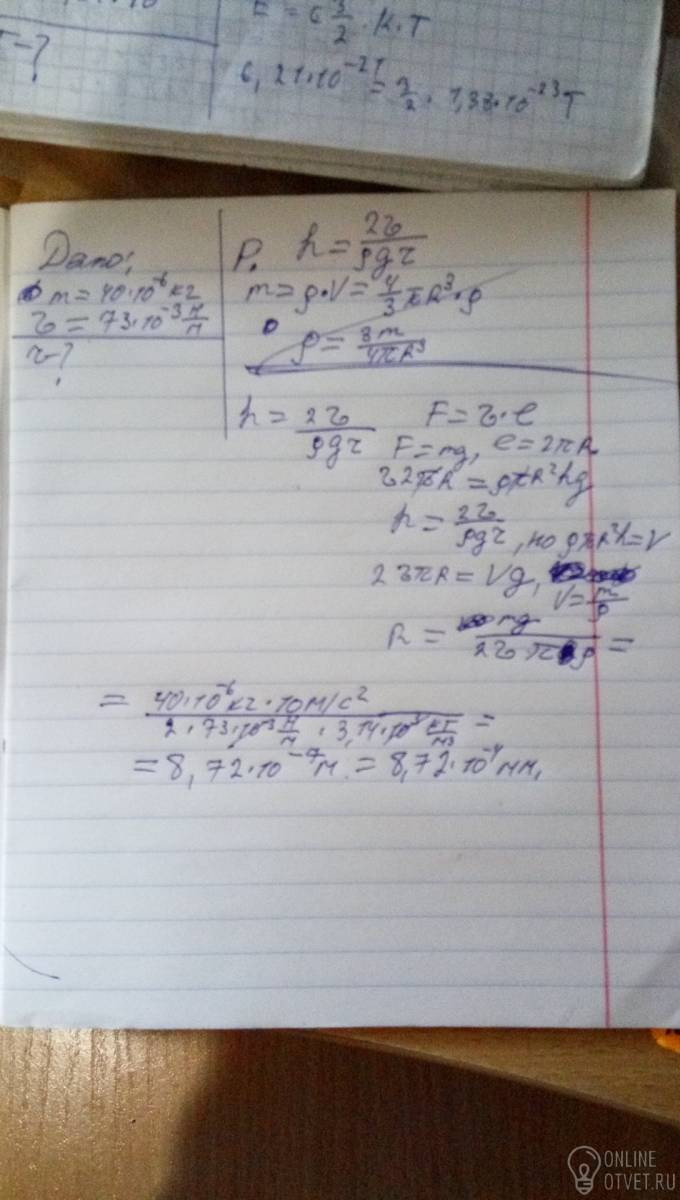 E = 6 3/2 · K · T
T-?
6,21·10⁻²¹ = 3/2 · 1,38·10⁻²³T
Дано:
m = 40·10⁻⁶ кг
σ = 73·10⁻³ Н/м
r-?
Р. h = 2σ/ρgr
m = ρ·V = 4/3 πR³·ρ
ρ = 3m/4πR³
h = 2σ/ρgr
F = σ·l
F = mg, l = 2πR
σ2πR = ρπR²hg
h = 2σ/ρgr, но ρπR²h = V
2σπR = Vg,
V = m/ρ
R = mg/2σπρ =
= 40·10⁻⁶кг·10м/с² / 2·73·10⁻³ Н/м · 3,14·10³ кг/м³ =
= 8,72·10⁻⁷м = 8,72·10⁻⁴мм,
ONLINE
OTVET.RU